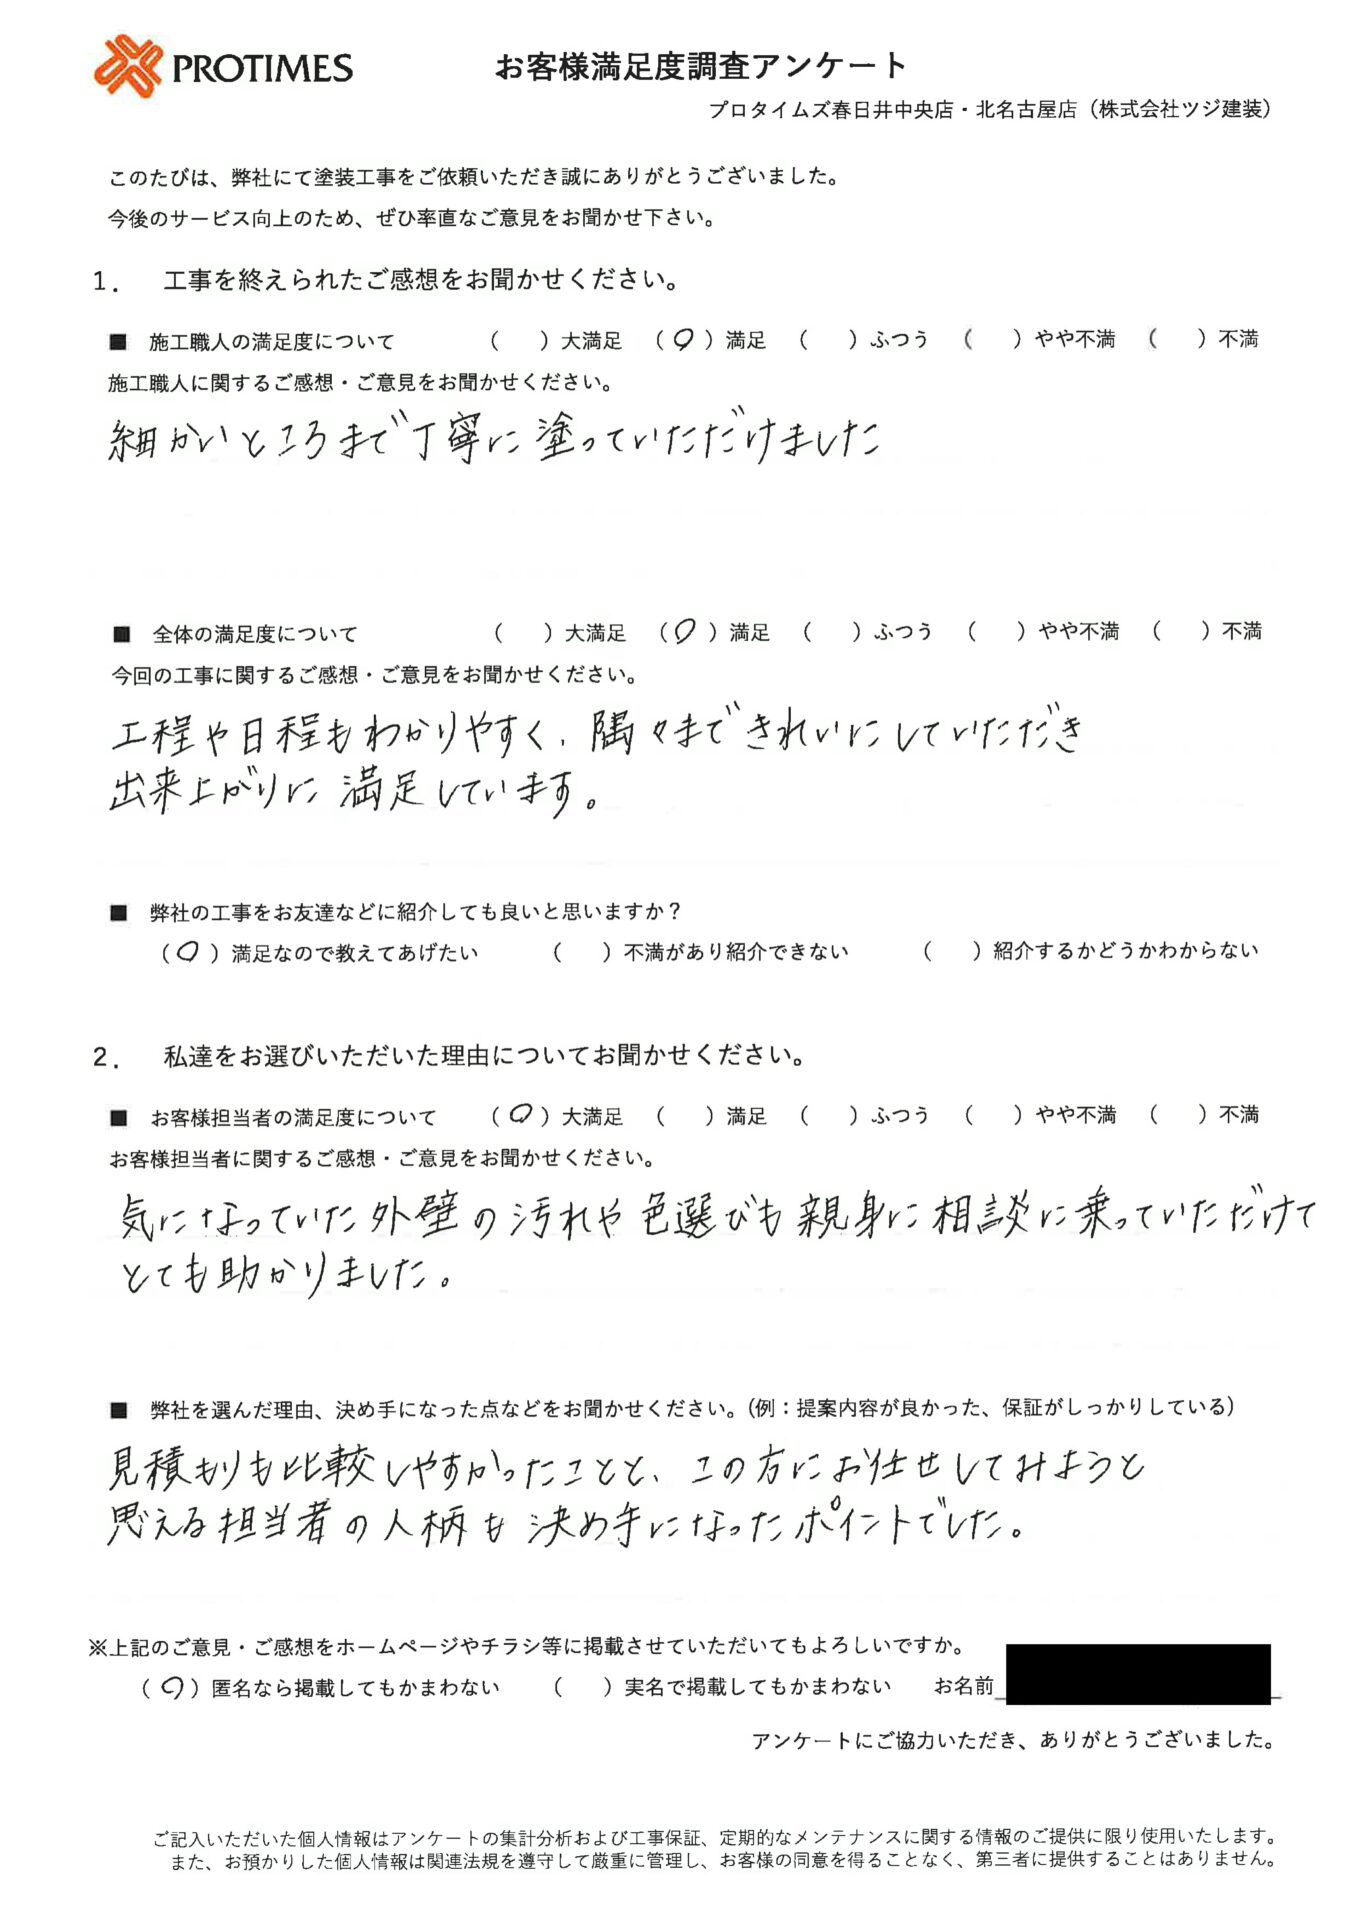 PROTIMES お客様満足度調査アンケート
プロタイムズ春日井中央店・北名古屋店（株式会社ツジ建装）
このたびは、弊社にて塗装工事をご依頼いただき誠にありがとうございました。
今後のサービス向上のため、ぜひ率直なご意見をお聞かせ下さい。
１． 工事を終えられたご感想をお聞かせください。
■ 施工職人の満足度について （ ）大満足 （○）満足 （ ）ふつう （ ）やや不満 （ ）不満
施工職人に関するご感想・ご意見をお聞かせください。
細かいところまで丁寧に塗っていただけました
■ 全体の満足度について （ ）大満足 （○）満足 （ ）ふつう （ ）やや不満 （ ）不満
今回の工事に関するご感想・ご意見をお聞かせください。
工程や日程もわかりやすく、隅々まできれいにしていただき
出来上がりに満足しています。
■ 弊社の工事をお友達などに紹介しても良いと思いますか？
（○）満足なので教えてあげたい （ ）不満があり紹介できない （ ）紹介するかどうかわからない
２． 私達をお選びいただいた理由についてお聞かせください。
■ お客様担当者の満足度について （○）大満足 （ ）満足 （ ）ふつう （ ）やや不満 （ ）不満
お客様担当者に関するご感想・ご意見をお聞かせください。
気になっていた外壁の汚れや色選びも親身に相談に乗っていただけて
とても助かりました。
■ 弊社を選んだ理由、決め手になった点などをお聞かせください。（例：提案内容が良かった、保証がしっかりしている）
見積もりも比較しやすかったことと、この方にお任せしてみようと
思える担当者の人柄も決め手になったポイントでした。
※上記のご意見・ご感想をホームページやチラシ等に掲載させていただいてもよろしいですか。
（○）匿名なら掲載してもかまわない （ ）実名で掲載してもかまわない お名前
アンケートにご協力いただき、ありがとうございました。
ご記入いただいた個人情報はアンケートの集計分析および工事保証、定期的なメンテナンスに関する情報のご提供に限り使用いたします。
また、お預かりした個人情報は関連法規を遵守して厳重に管理し、お客様の同意を得ることなく、第三者に提供することはありません。